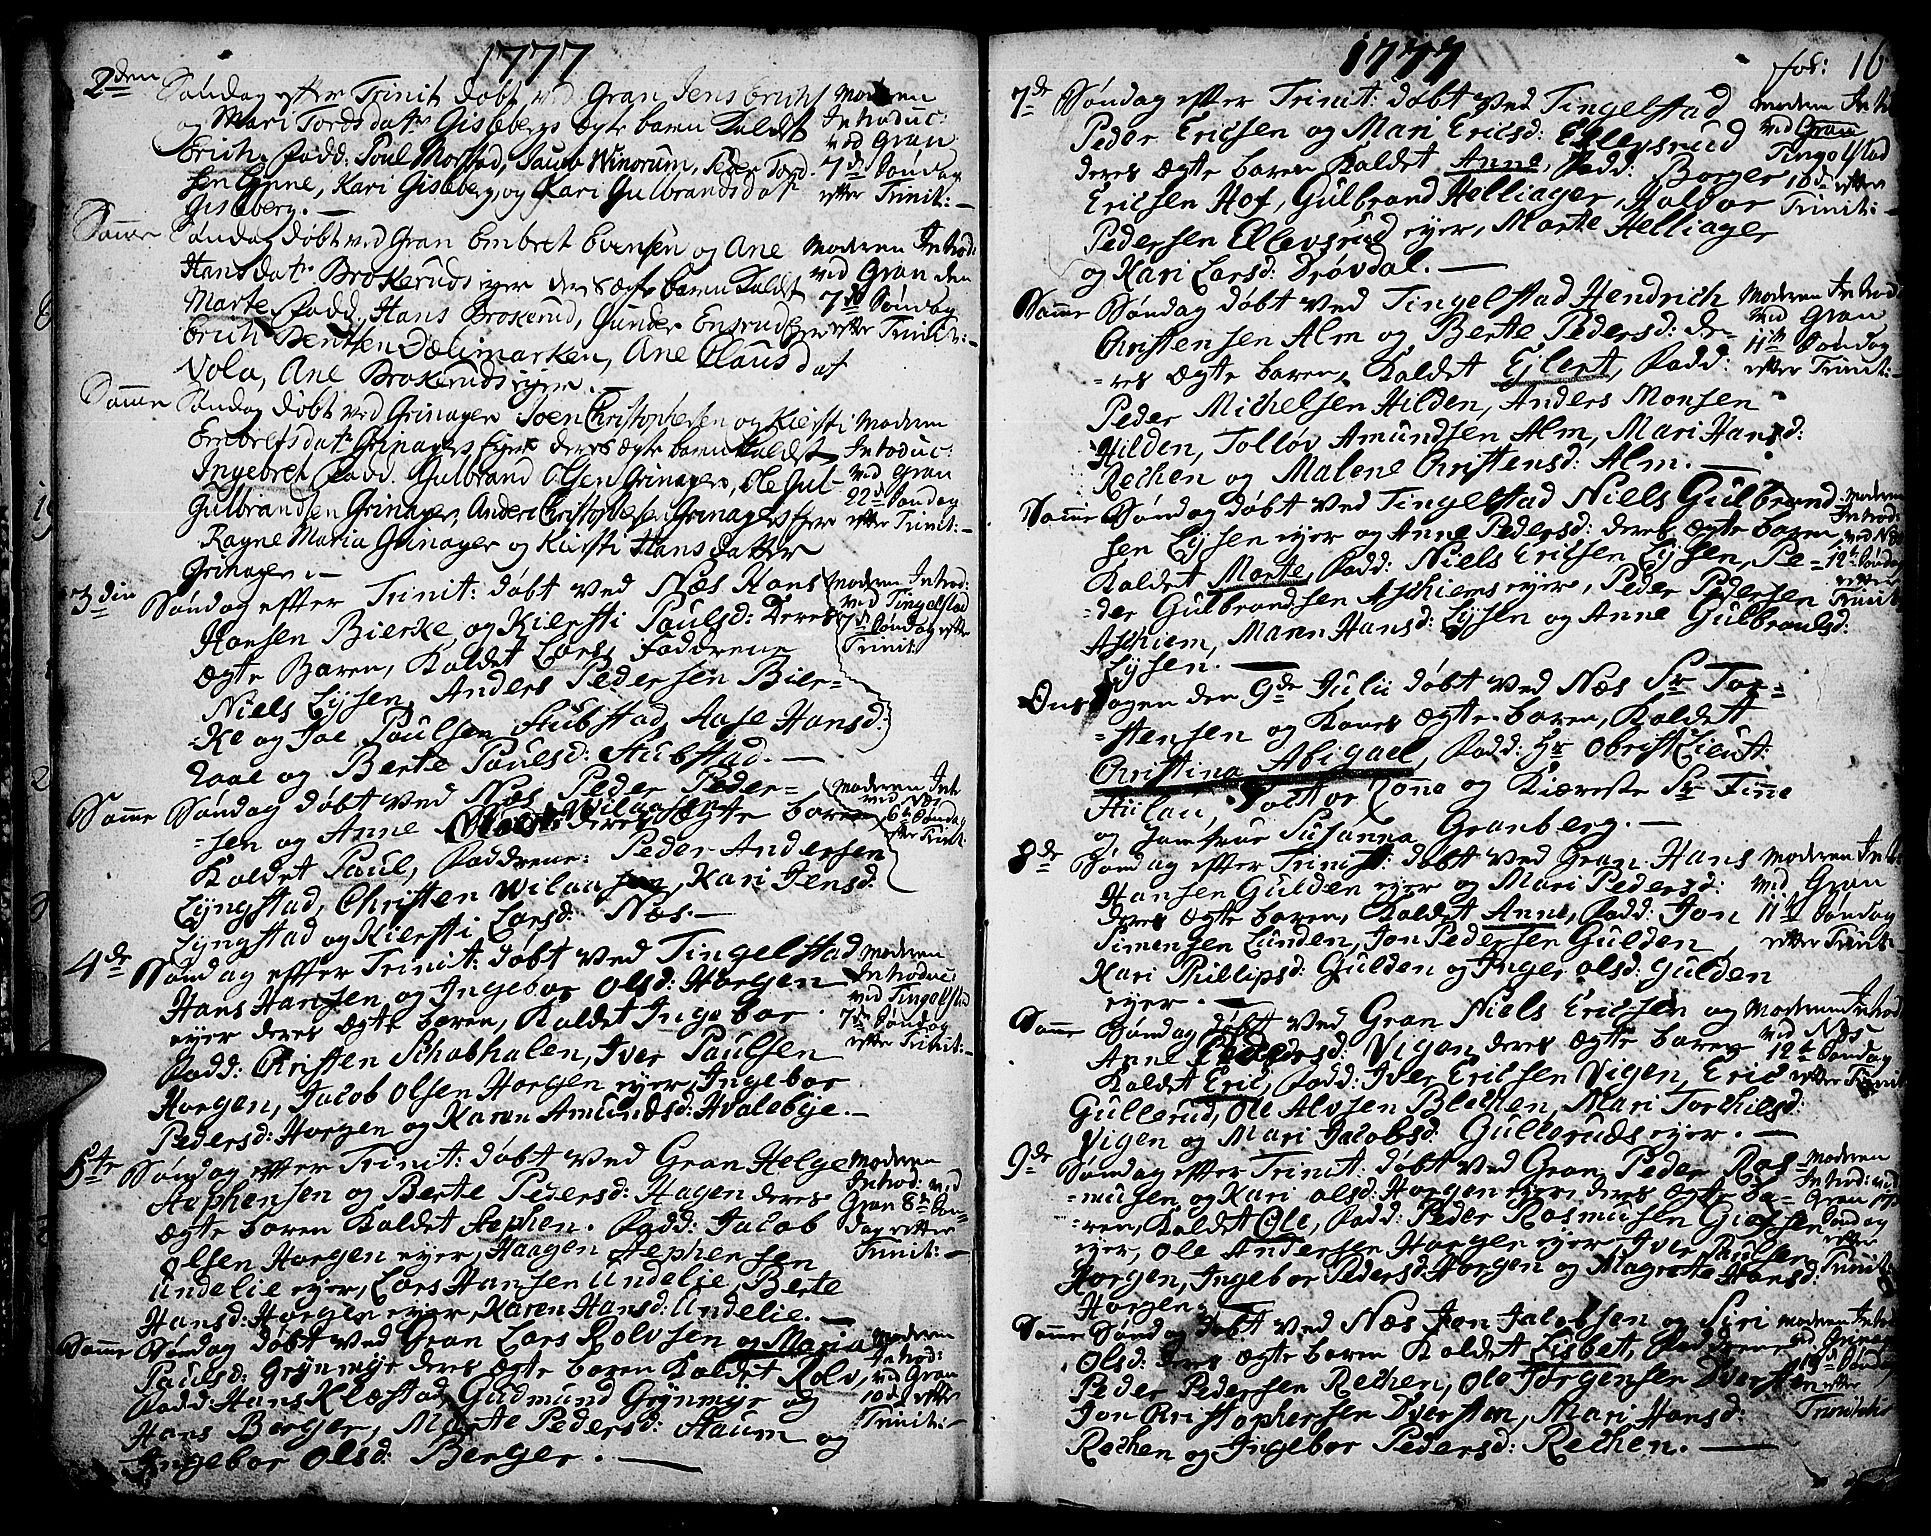 1777
2den Søndag efter Trinit døbt ved Gran Jens Erichs
og Mari Tordsdatr Gislebergs Ægte barn Kaldet
Erich. Fadd: Poul Morstad, Jacob Winorum, Peder Tord-
sen Lynne, Kari Gisleberg, og Kari Gulbrandsdat
Gisleberg. —
Moderen
Introduc:
ved Gran
7de Søndag
efter Trinit: —
Samme Søndag døbt ved Gran Embret Evensen og Ane
Hansdatr Brokeruds eyer deres ægte baren Kaldet
Marte. Fadd. Hans Brokerud, Gunder Ensrud
Erich Bentsen Dælimarken, Ane Clausdat
Vola, Ane Brokeruds eyer. —
Moderen Introd:
ved Gran den
7de Søndag
efter Trinit: —
Samme Søndag døbt ved Grinager Joen Christophersen og Kiersti
Embretsdatr Grinagers Eyer deres ægte barn Kaldet
Ingebret Fadd. Gulbrand Olsen Grinager, Ole Gul-
Gulbrandsen Grinager, Anders Christophersen Grinagers Eyer
Ragne Maria Grinager og Kiersti Hansdatter
Grinager. —
Moderen
Introduc:
ved Gran
22de Søndag
efter Trinit: —
3die Søndag efter Trinit: døbt ved Næs Hans
Hansen Bierke og Kiersti Paulsd: Deres
ægte Baren, Kaldet Lars Faddrene
Niels Lysen, Anders Pedersen Bier-
ke og Joe Paulsen Stubstad, Aase Hansd:
Laae og Berte Paulsd: Stubstad. —
Moderen Introd:
ved Tingelstad
7de Søndag efter
Trinit:
Samme Søndag døbt ved Næs Peder Peder=
=sen og Anne Wilaasen deres Ægte baren
Kaldet Paul, Faddrene: Peder Andersen
Lyngstad, Christen Wilaasen, Kari Jensd:
Lyngstad og Kiersti Larsd: Næs. —
Moderen Int
ved Næs
6te Søndag
efter Trinit:
4de Søndag efter Trinit: døbt ved Tingelstad
Hans Hansen og Ingebor Olsd: Horgen
eyer deres Ægte baren, Kaldet Ingebor
Fadd: Christen Schabhalen, Iver Paulsen
Horgen, Jacob Olsen Horgen eyer, Ingebor
Pedersd: Horgen og Karen Amundsd: Hvalebye. —
Moderen
Introduc:
ved Tingelstad
7de Søndag
efter Trinit: —
5te Søndag efter Trinit: døbt ved Gran Helge
Stephensen og Berte Pedersd: Hagen deres
ægte baren Kaldet Stephen. Fadd: Jacob
Olsen Horgen eyer, Haagen Stephensen
Undelie eyer, Lars Hansen Undelie, Berte
Hansd: Horgen eyer, Karen Hansd: Undelie. —
Moderen
Introd: ved
Gran 8de Søn=
dag efter
Trinit: —
Samme Søndag døbt ved Gran Lars Rolvsen og Maria
Paulsd: Grynmyr deres ægte baren Kaldet Rolv,
Fadd: Hans Klæstad, Gudmund Grynmyr og
Hans Berger, Marte Pedersd: Haum og
Ingebor Olsd: Berger. —
Moderen
Introd:
ved Gran
10de efter
Trinit: —
1777
fol: 16
7de Søndag efter Trinit: døbt ved Tingelstad
Peder Ericsen og Mari Ericsd: Ellevsrud
deres ægte baren Kaldet Anne, Fadd: Borger
Ericsen Hof, Gulbrand Helliager, Haldor
Pedersen Ellevsrud eyer, Marte Helliager
og Kari Larsd: Drøvdal. —
Moderen Int
ved Gran
Tingelstad
10de efter
Trinit: —
Samme Søndag døbt ved Tingelstad Hendrich
Christensen Alm og Berte Pedersd: de=
=res Ægte baren, Kaldet Eilert, Fadd:
Peder Michelsen Hilden, Anders Monsen
Hilden, Tolløv Amundsen Alm, Mari Hansd:
Rechen og Malene Christensd: Alm. —
Moderen Introd
ved Gran
11te Søndag
efter Trinit: —
Samme Søndag døbt ved Tingelstad Niels Gulbrand
sen Lysen eyer og Anne Pedersd: deres ægte baren
Kaldet Marte, Fadd: Niels Ericsen Lysen, Pe=
=der Gulbrandsen Aschiems eyer, Peder Pedersen
Aschiem, Maren Hansd: Lysen og Anne Gulbransd:
Lysen. —
Moderen
Introd:
ved Næs
12te Søndag
efter
Trinit
Onsdagen den 9de Julii døbt ved Næs Sr Tor=
=stensen og Kones ægte baren, Kaldet
Christina Abigael, Fadd: Hr Obrist Lieut:
Hulau, Doctor Kone og Kiæreste Sr Finne
og Jomfrue Susanna Granberg. —
8de Søndag efter Trinit: døbt ved Gran Hans
Hansen Gulden eyer og Mari Pedersd:
deres Ægte baren, Kaldet Anne, Fadd: Jon
Simensen Lunden, Jon Pedersen Gulden,
Kari Phillipsd: Gulden og Inger Olsd: Gulden
eyer. —
Moderen Int:
ved Gran
11te Søndag
efter Trinit: —
Samme Søndag døbt ved Gran Niels Ericsen og
Anne Pedersd: Vigen deres Ægte baren
Kaldet Eric, Fadd: Iver Ericsen Vigen, Eric
Gullerud, Ole Alvsen Blechen, Mari Torchilsd:
Vigen og Mari Jacobsd: Gulleruds eyer. —
Moderen Introd
ved Næs
12te Søndag
efter Trinit
9de Søndag efter Trinit: døbt ved Gran Peder Ras=
=musen og Kari Olsd: Horgen eyer, deres Ægte ba=
=ren, Kaldet Ole, Fadd: Peder Rasmusen
eyer, Ole Andersen Horgen eyer, Iver Paulsen
Horgen, Ingebor Pedersd: Horgen og Magrete Hansd:
Horgen. —
Moderen
Introd: ved
Gran
Søndag
efter
Trinit:
Samme Søndag døbt ved Næs Jon Jacobsen og Siri
Olsd: deres ægte baren Kaldet Lisbet, Faddrene
Peder Pedersen Rechen, Ole Jørgensen Dversten
Jon Christophersen Dversten, Mari Hansd:
Rechen og Ingebor Pedersd: Rechen. —
Moderen Introd
ved Grinager
Søndag
efter
Trinitatis